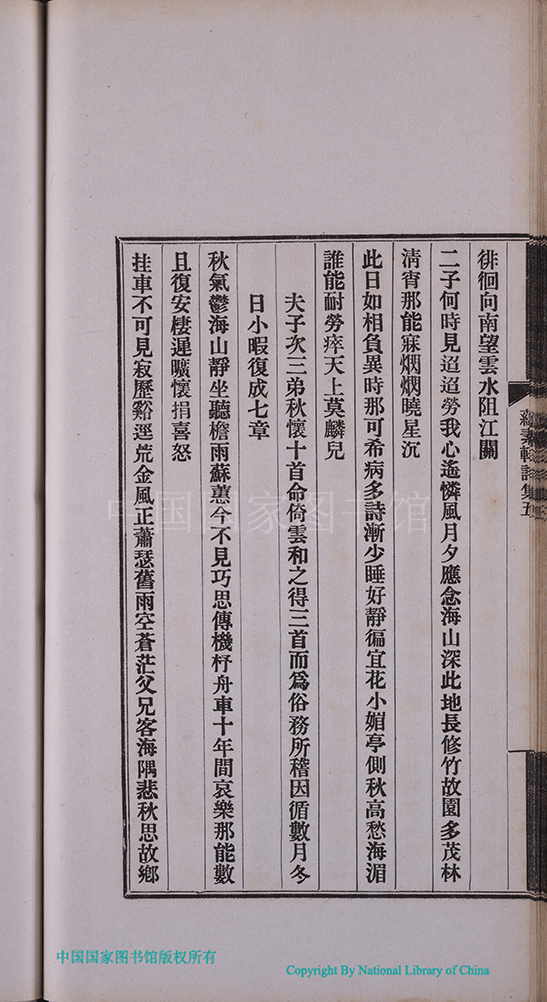 徘徊向南望雲水阻江關
二子何時見迢迢勞我心遙憐風月夕應念海山深此地長修竹故園多茂林
清宵那能寐烱烱曉星沉
此日如相負異時那可希病多詩漸少睡好靜徧宜花小媚亭側秋高愁海湄
誰能耐勞瘁天上莫麟兒
夫子次三弟秋懷十首命倚雲和之得三首而爲俗務所稽因循數月冬
日小暇復成七章
秋氣鬱海山靜坐聽檐雨蘇蕙今不見巧思傳機杼舟車十年間哀樂那能數
且復安棲遲曠懷捐喜怒
挂車不可見寂歷谿逕荒金風正蕭瑟舊雨空蒼茫父兄客海隅悲秋思故鄉
素軒詩集五
中国国家图书馆
中国国家图书馆版权所有
Copyright By National Library of China